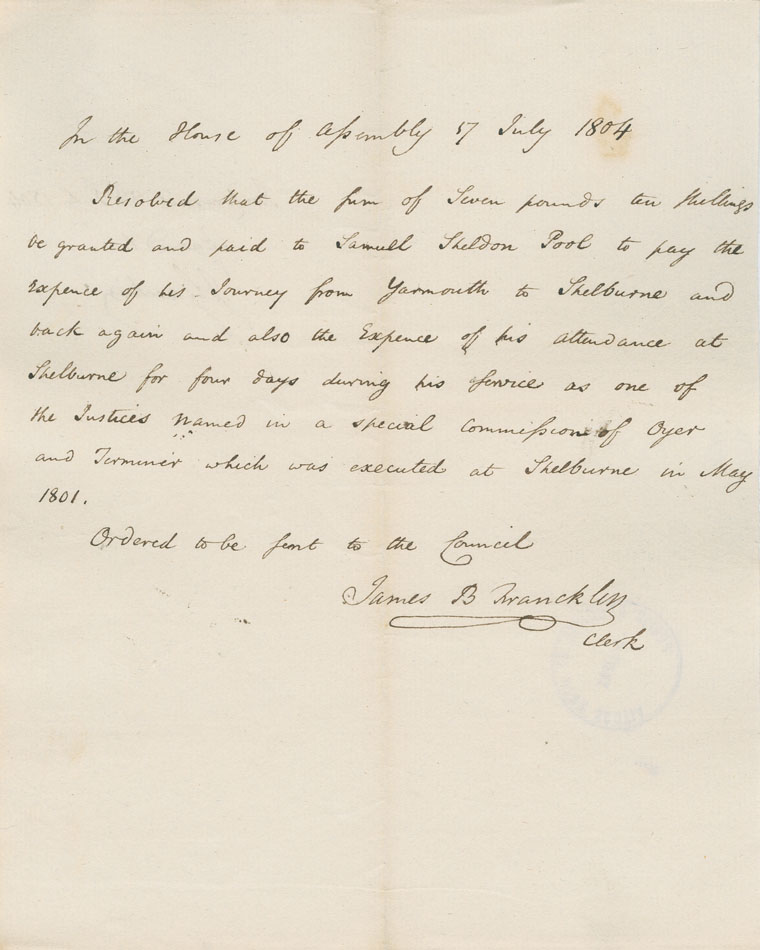 In the House of Assembly 17 July 1804
Resolved that the sum of Seven pounds ten Shillings
be granted and paid to Samuel Sheldon Pool to pay the
Expence of his Journey from Yarmouth to Shelburne and
back again and also the Expence of his attendance at
Shelburne for four days during his Service as one of
the Justices named in a special Commission of Oyer
and Terminer which was executed at Shelburne in May
1801.
Ordered to be sent to the Council
James B Francklin
Clerk